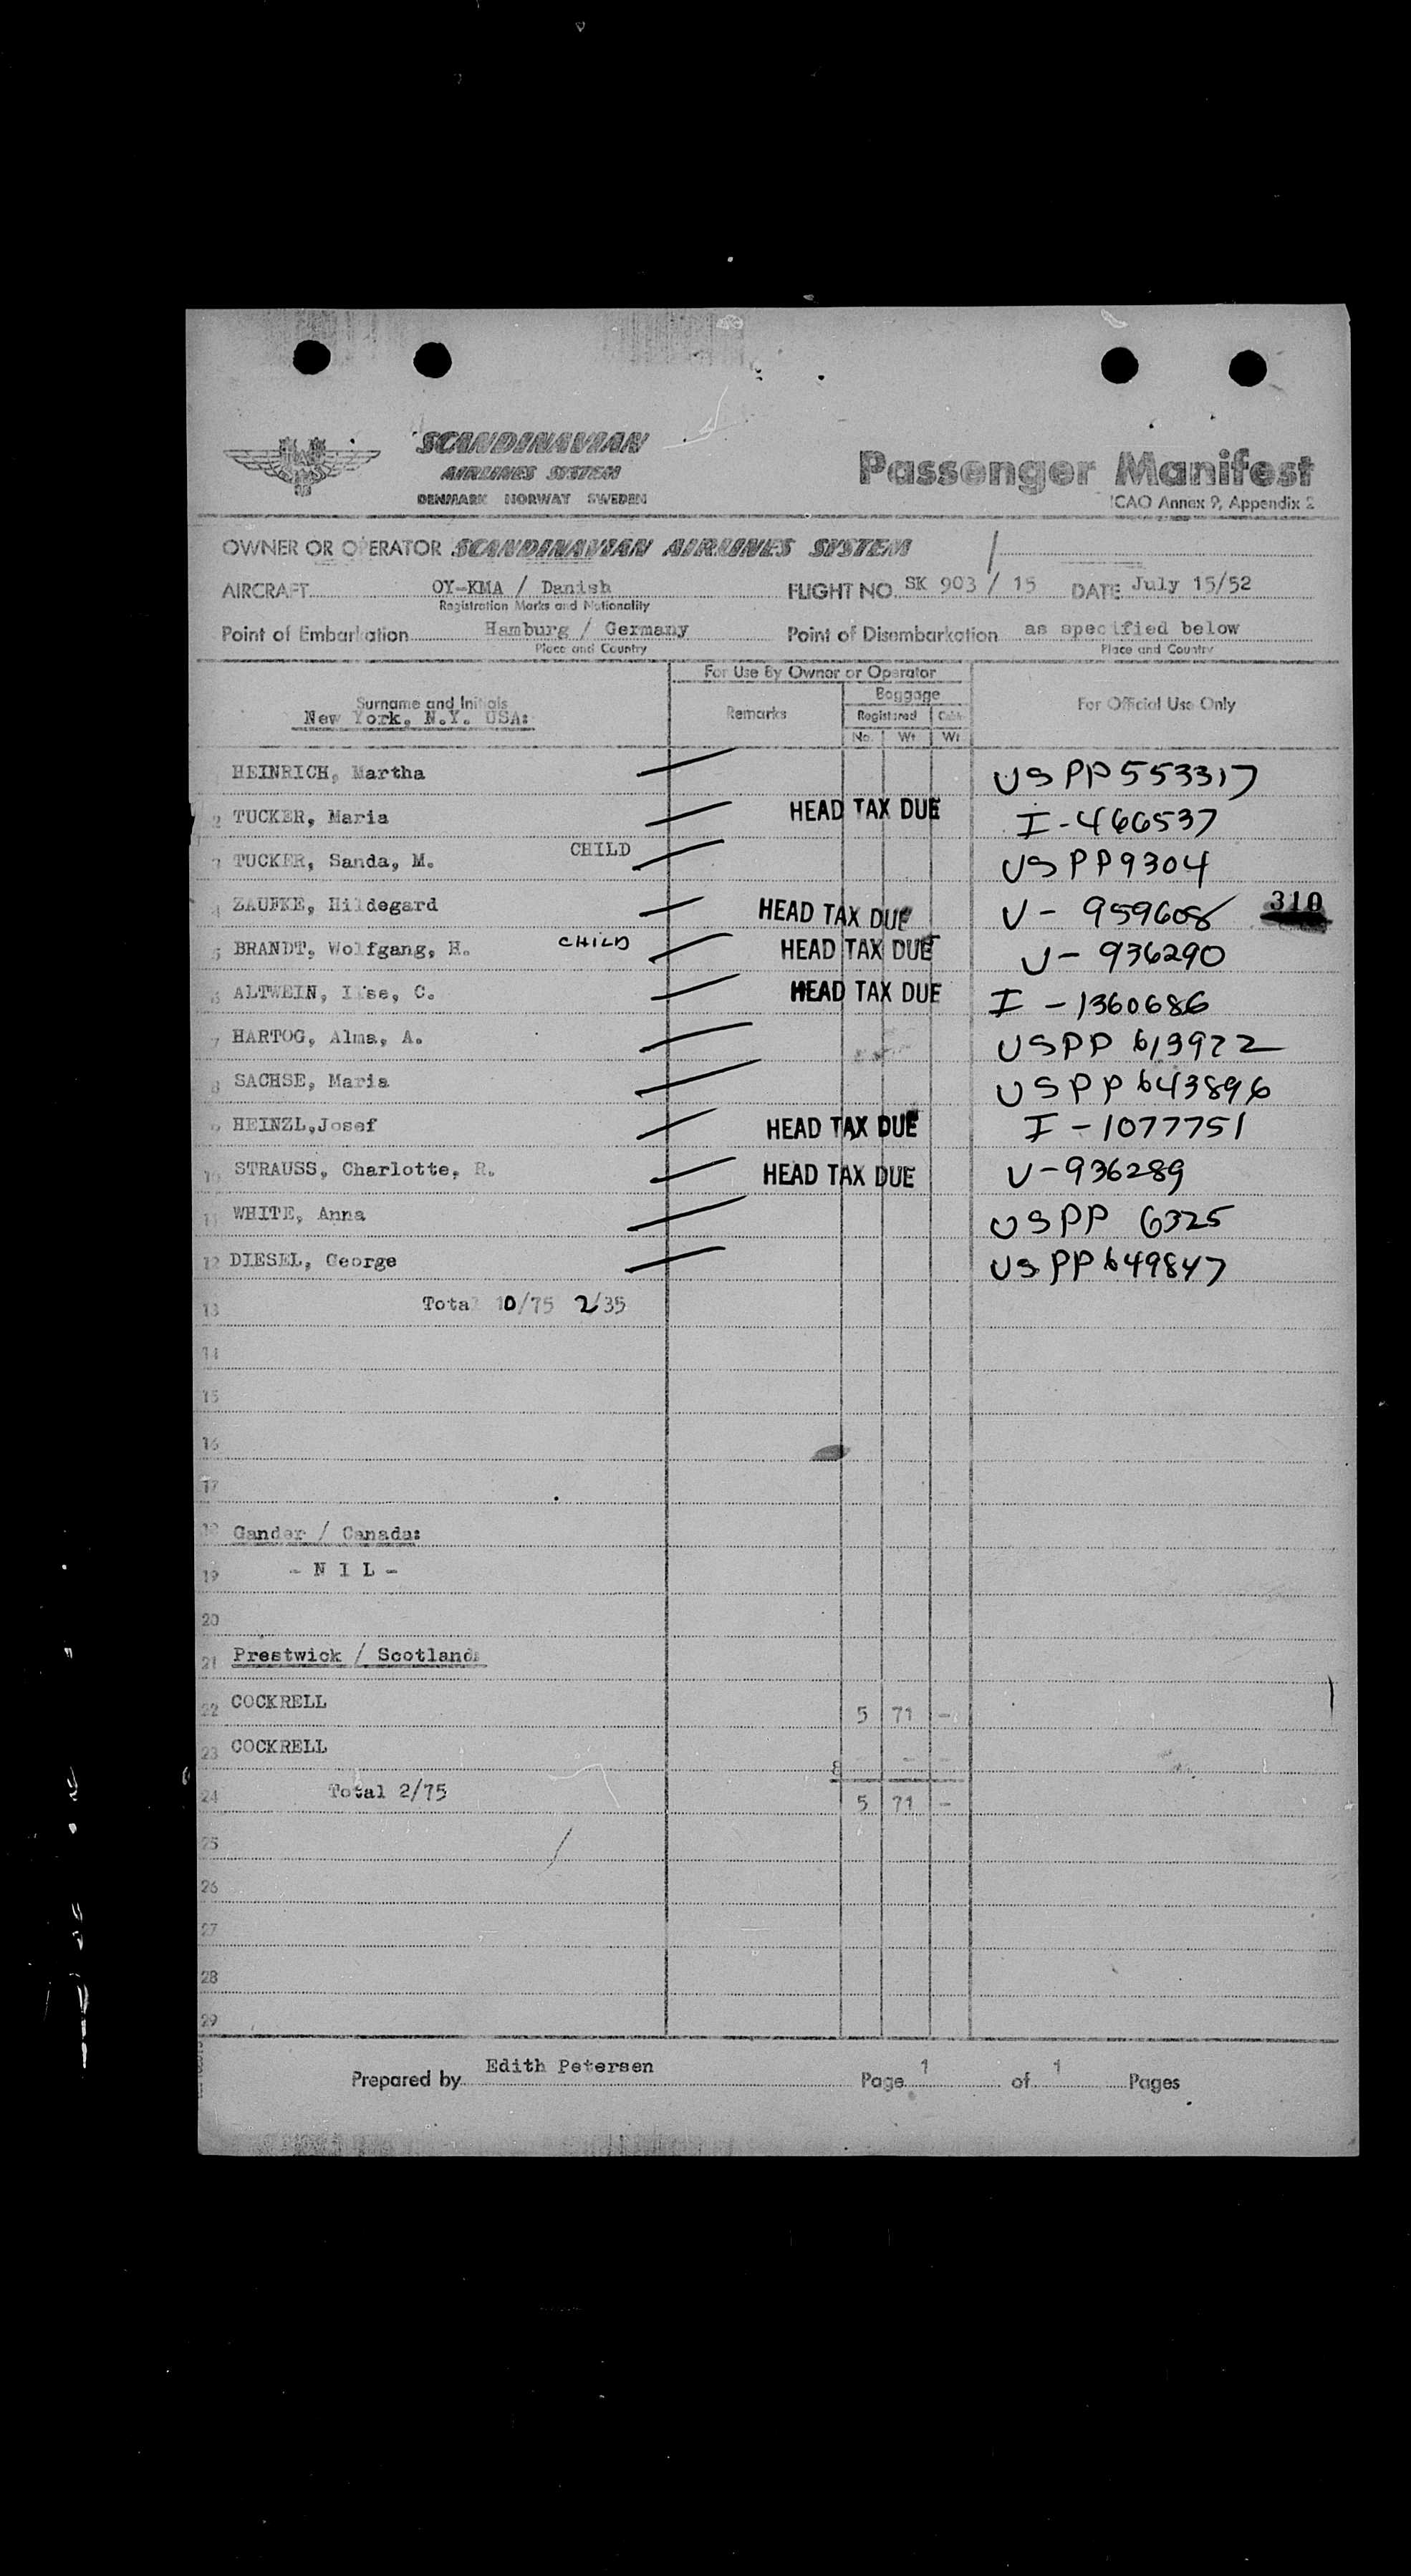 SCANDINAVIAN
AIRLINES SYSTEM
DENMARK NORWAY SWEDEN
Passenger Manifest
ICAO Annex 9, Appendix 2
OWNER OR OPERATOR SCANDINAVIAN AIRLINES SYSTEM
AIRCRAFT OY-KMA / Danish FLIGHT NO. SK 903 / 15 DATE July 15/52
Registration Marks and Nationality
Point of Embarkation Hamburg / Germany Point of Disembarkation as specified below
Place and Country Place and Country
For Use By Owner or Operator
Surname and Initials Remarks Baggage For Official Use Only
New York, N.Y. USA: Registered Cabin
No. Wt Wt
HEINRICH, Martha USPP553317
2 TUCKER, Maria HEAD TAX DUE I-466537
3 TUCKER, Sanda, M. CHILD USPP9304
4 ZAUFKE, Hildegard HEAD TAX DUE V-959608 310
5 BRANDT, Wolfgang, H. CHILD HEAD TAX DUE V-936290
6 ALTWEIN, Ilse, C. HEAD TAX DUE I-1360686
7 HARTOG, Alma, A. USPP 613922
8 SACHSE, Maria USPP643896
9 HEINZL,Josef HEAD TAX DUE I-1077751
10 STRAUSS, Charlotte, R. HEAD TAX DUE V-936289
11 WHITE, Anna USPP 6325
12 DIESEL, George USPP649847
13 Total 10/75 2/35
14
15
16
17
18 Gander / Canada:
19 - N I L -
20
21 Prestwick / Scotland:
22 COCKRELL 5 71 -
23 COCKRELL - - -
24 Total 2/75 5 71 -
25
26
27
28
29
Prepared by Edith Petersen Page 1 of 1 Pages